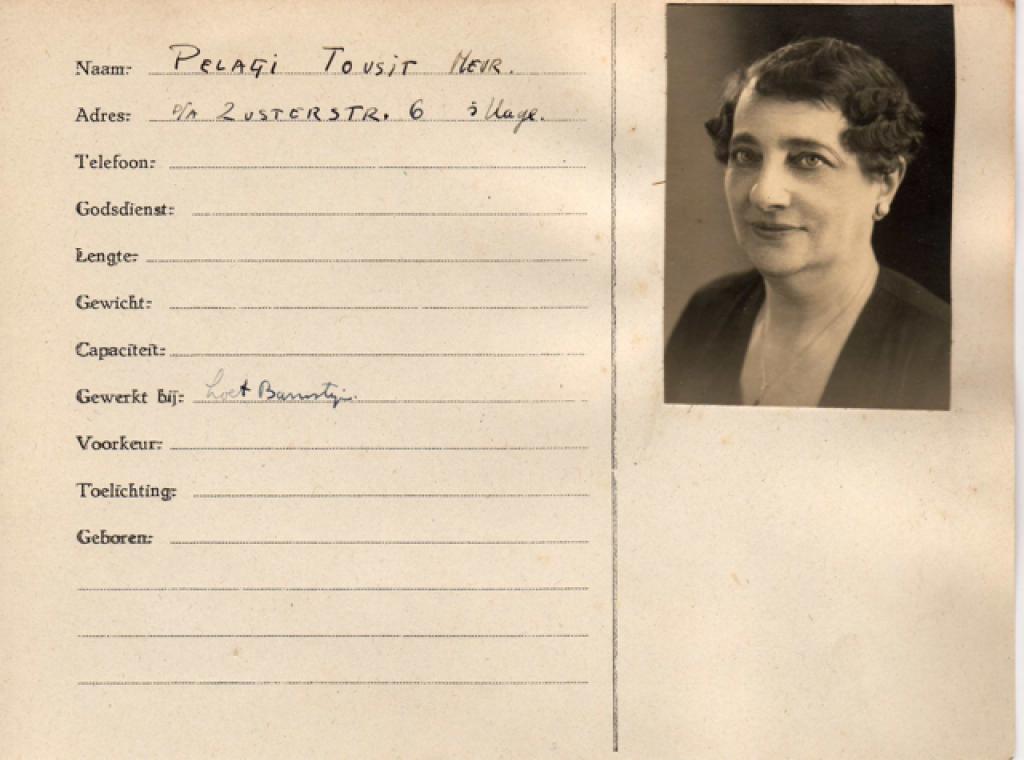 Naam: PELAGI TOUSIT MEVR.
Adres: p/a ZUSTERSTR. 6 's Hage.
Telefoon:
Godsdienst:
Lengte:
Gewicht:
Capaciteit:
Gewerkt bij: Loet Barnstijn.
Voorkeur:
Toelichting:
Geboren: